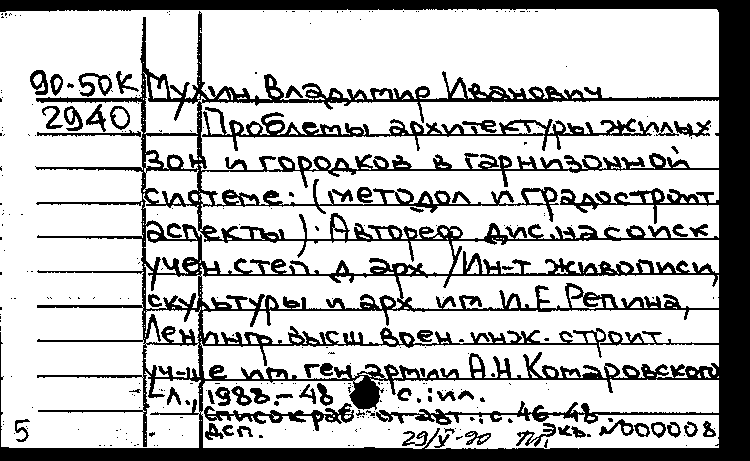 90-50К Мухин, Владимир Иванович
2940 Проблемы архитектуры жилых
зон и городков в гарнизонной
системе: (методол. и градостроит.
аспекты): Автореф. дис. на соиск.
учен. степ. д. арх. /Ин-т живописи,
скульптуры и арх. им. И.Е. Репина,
Ленингр. высш. воен. инж. строит.
уч-ще им. ген. армии А.Н. Комаровского
– Л., 1988. – 48 с.: ил.
Список раб. от авт.: с. 46-48.
ДСП. Экз. №000008
5 29/V-90